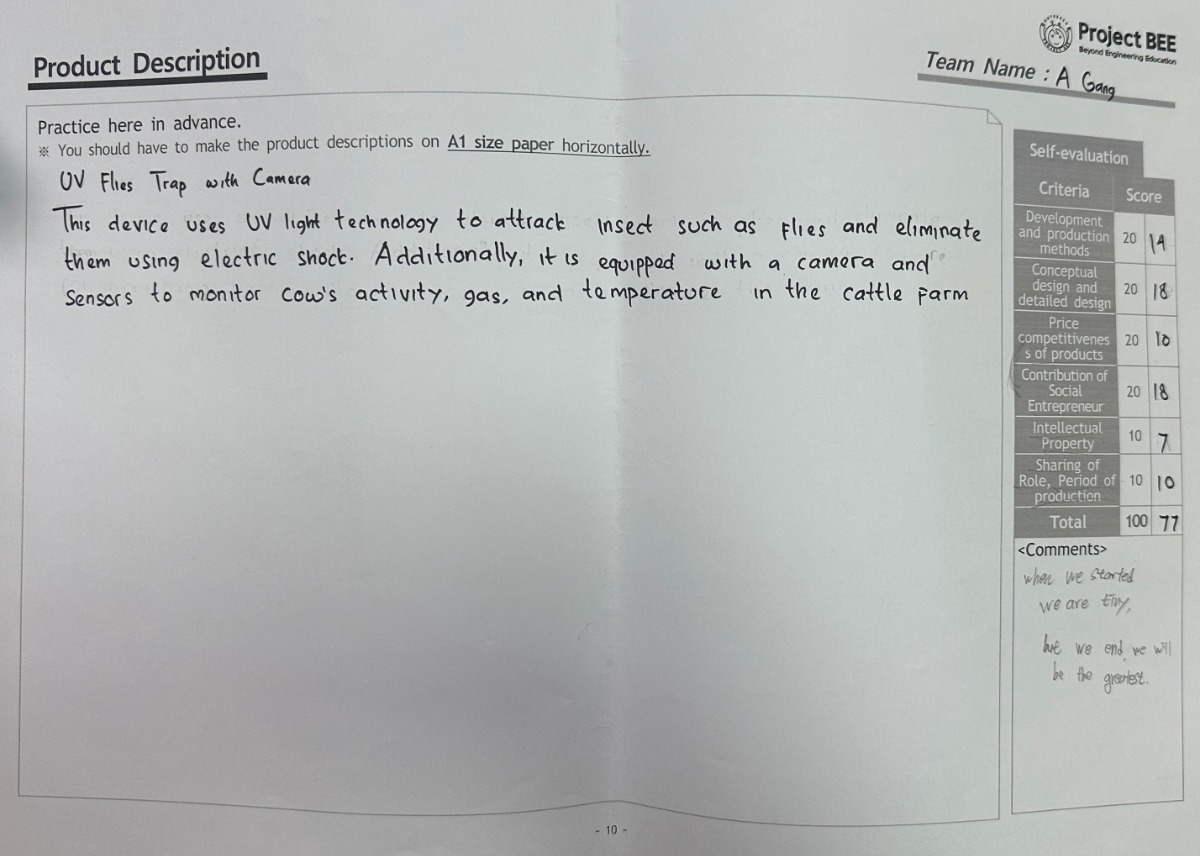 Project BEE
Beyond Engineering Education
Product Description
Team Name : A Gang
Practice here in advance.
※ You should have to make the product descriptions on A1 size paper horizontally.
UV Flies Trap with Camera
This device uses UV light technology to attrack insect such as flies and eliminate
them using electric shock. Additionally, it is equipped with a camera and
Sensors to monitor cow's activity, gas, and temperature in the cattle farm
Self-evaluation
Criteria Score
Development
and production
methods
20 14
Conceptual
design and
detailed design
20 18
Price
competitivenes
s of products
20 10
Contribution of
Social
Entrepreneur
20 18
Intellectual
Property
10 7
Sharing of
Role, Period of
production
10 10
Total 100 77
<Comments>
when we started
we are tiny,
but we end we will
be the greatest.
- 10 -